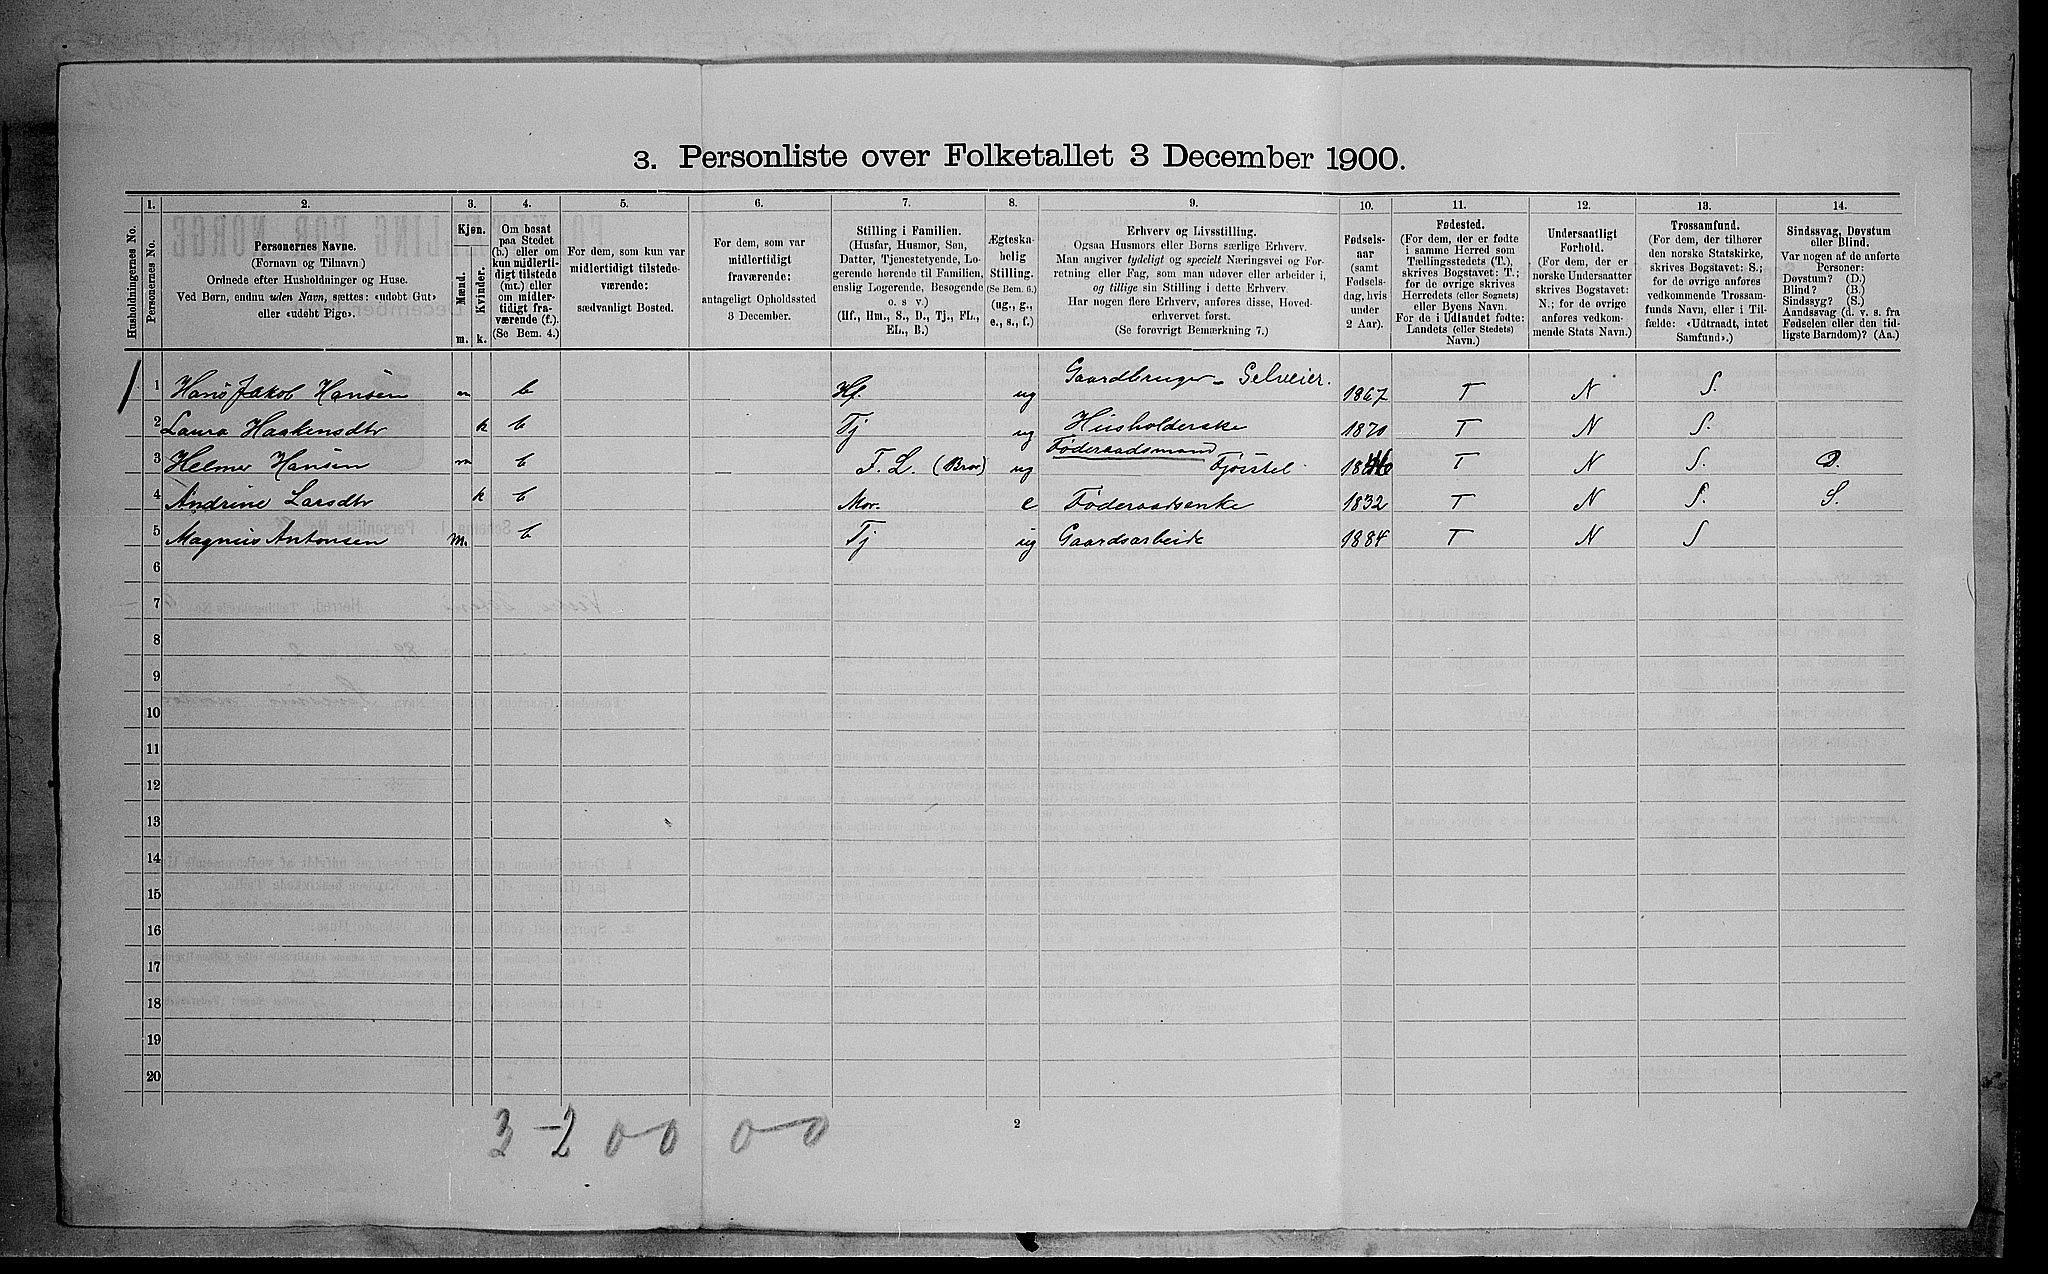 3. Personliste over Folketallet 3 December 1900.
Husholdningernes No.
1.
Personernes No.
2.
Personernes Navne.
(Fornavn og Tilnavn.)
Ordnede efter Husholdninger og Huse.
Ved Børn, endnu uden Navn, sættes: «udøbt Gut»
eller «udøbt Pige».
3.
Kjøn.
Mænd.
Kvinder.
m.
k.
4.
Om bosat
paa Stedet
(b.) eller om
kun midlerti-
digt tilstede
(mt.) eller
om midler-
tidigt fra-
værende (f.).
(Se Bem. 4.)
5.
For dem, som kun var
midlertidigt tilstede-
værende:
sædvanligt Bosted.
6.
For dem, som var
midlertidigt
fraværende:
antageligt Opholdssted
3 December.
7.
Stilling i Familien.
(Husfar, Husmor, Søn,
Datter, Tjenestetyende, Lo-
gerende hørende til Familien,
enslig Logerende, Besøgende
o. s. v.)
(Hf., Hm., S., D., Tj., FL.,
EL., B.)
8.
Ægteska-
belig
Stilling.
(Se Bem. 6.)
(ug., g.,
e., s., f.)
9.
Erhverv og Livsstilling.
Ogsaa Husmors eller Børns særlige Erhverv.
Man angiver tydeligt og specielt Næringsvei og For-
retning eller Fag, som man udøver eller arbeider i,
og tillige sin Stilling i dette Erhverv.
Har nogen flere Erhverv, anføres disse, Hoved-
erhvervet først.
(Se forøvrigt Bemærkning 7.)
10.
Fødsels-
aar
(samt
Fødsels-
dag, hvis
under
2 Aar).
11.
Fødested.
(For dem, der er fødte
i samme Herred som
Tællingsstedets (T.),
skrives Bogstavet: T.;
for de øvrige skrives
Herredets (eller Sognets)
eller Byens Navn.
For de i Udlandet fødte:
Landets (eller Stedets)
Navn.)
12.
Undersaatligt
Forhold.
(For dem, der er
norske Undersaatter
skrives Bogstavet:
N.; for de øvrige
anføres vedkom-
mende Stats Navn.)
13.
Trossamfund.
(For dem, der tilhører
den norske Statskirke,
skrives Bogstavet: S.;
for de øvrige anføres
vedkommende Trossam-
funds Navn, eller i Til-
fælde: «Udtraadt, intet
Samfund».)
14.
Sindssvag, Døvstum
eller Blind.
Var nogen af de anførte
Personer:
Døvstum? (D.)
Blind? (B.)
Sindssyg? (S.)
Aandssvag (d. v. s. fra
Fødselen eller den tid-
ligste Barndom)? (Aa.)
1 1 Hans Jakob Hansen m b Hf. ug Gaardbruger - Selveier. 1867 T N S.
2 Laura Haakensdtr k b Tj ug Husholderske 1870 T N S.
3 Helmer Hansen m b F. L. (Bror) ug Føderaadsmand Fjøsstel T N S. D.
4 Andrine Larsdtr k b Mor. e Føderaadsenke 1832 T N S. S.
5 Magnus Antonsen m. b Tj ug Gaardsarbeide 1884 T N S
6
7
8
9
10
11
12
13
14
15
16
17
18
19
20
3 - 2 0 0 0 0
2